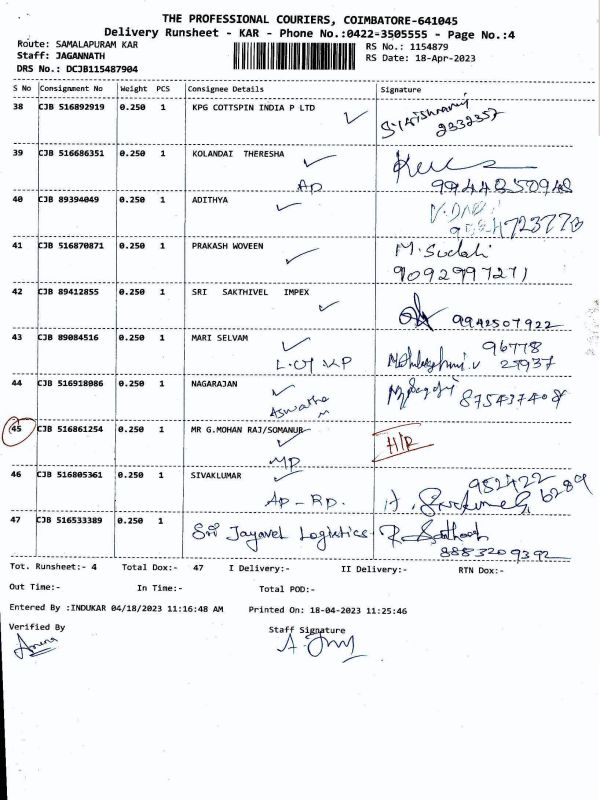 THE PROFESSIONAL COURIERS, COIMBATORE-641045
Delivery Runsheet - KAR - Phone No.:0422-3505555 - Page No.:4
Route: SAMALAPURAM KAR
RS No.: 1154879
Staff: JAGANNATH
RS Date: 18-Apr-2023
DRS No.: DCJB115487904
S No Consignment No Weight PCS Consignee Details Signature
38 CJB 516892919 0.250 1 KPG COTTSPIN INDIA P LTD
2332357
39 CJB 516686351 0.250 1 KOLANDAI THERESHA
AD 9944250948
40 CJB 89394049 0.250 1 ADITHYA
41 CJB 516870871 0.250 1 PRAKASH WOVEEN M. Sudali
9092997271
42 CJB 89412855 0.250 1 SRI SAKTHIVEL IMPEX
9942507922
43 CJB 89084516 0.250 1 MARI SELVAM 96778
27937
44 CJB 516918086 0.250 1 NAGARAJAN
Aswatha 875437408
45 CJB 516861254 0.250 1 MR G.MOHAN RAJ/SOMANUR H/R
MP
46 CJB 516805361 0.250 1 SIVAKLUMAR 952422
AD-RD. 6289
47 CJB 516533389 0.250 1 Sri Jayavel Logistics
8883209392
Tot. Runsheet:- 4 Total Dox:- 47 I Delivery:- II Delivery:- RTN Dox:-
Out Time:- In Time:- Total POD:-
Entered By :INDUKAR 04/18/2023 11:16:48 AM Printed On: 18-04-2023 11:25:46
Verified By Staff Signature